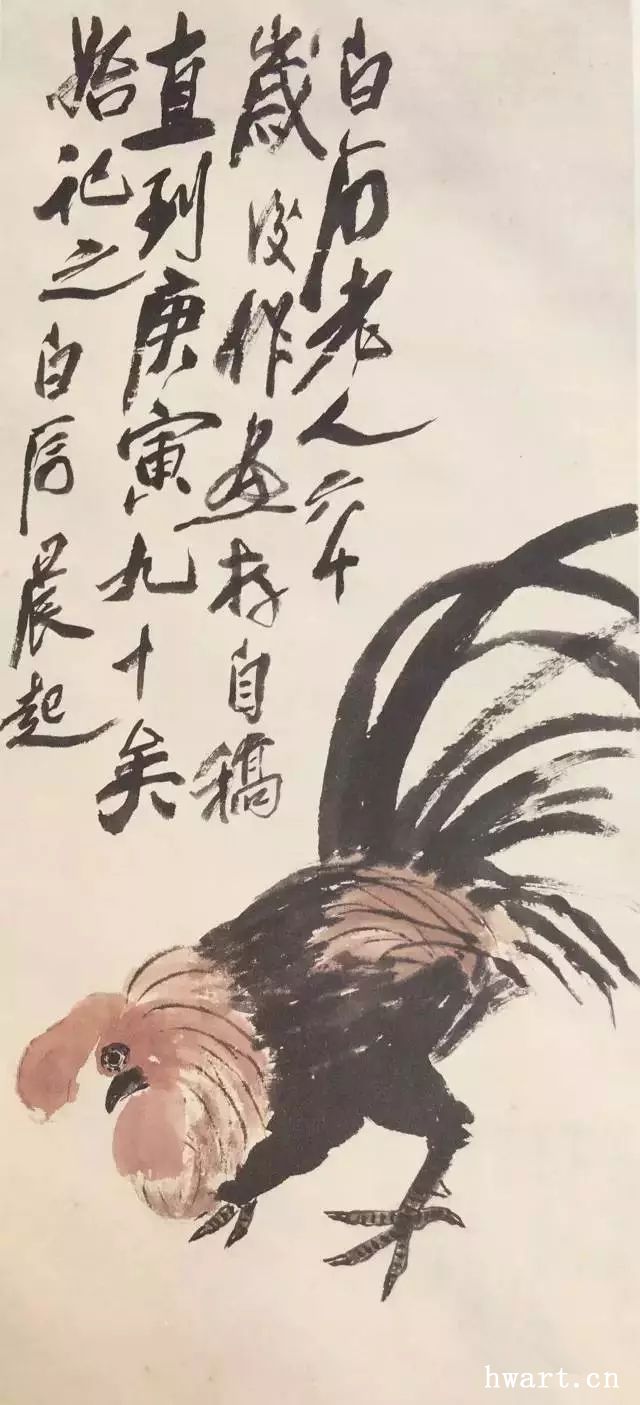 白石老人六十
歲後作画存自稿
直到庚寅九十矣
始記之白石晨起
hwart.cn